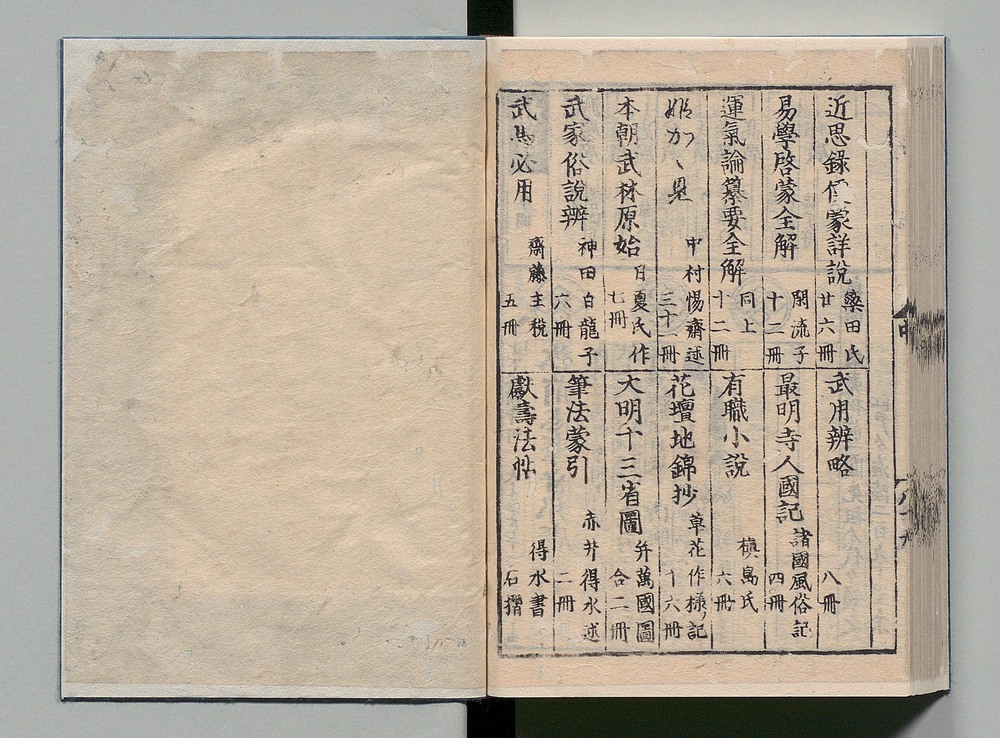 近思錄 蒙詳說 樂田氏 廿六冊
易學啓蒙全解 閑流子 十二冊
運氣論纂要全解 同上 十二冊
姫かゝ見 中村惕齋述 三十一冊
本朝武林原始 日夏氏作 七冊
武家俗說辨 神田白龍子 六冊
武馬必用 齋藤主税 五冊
武用辨略 八冊
最明寺人國記 諸國風俗記 四冊
有職小說 槙島氏 六冊
花壇地錦抄 草花作様ノ記 十六冊
大明十三省圖 并萬國圖 合二冊
筆法蒙引 赤井得水述 二冊
獻壽法帖 得水書 石摺